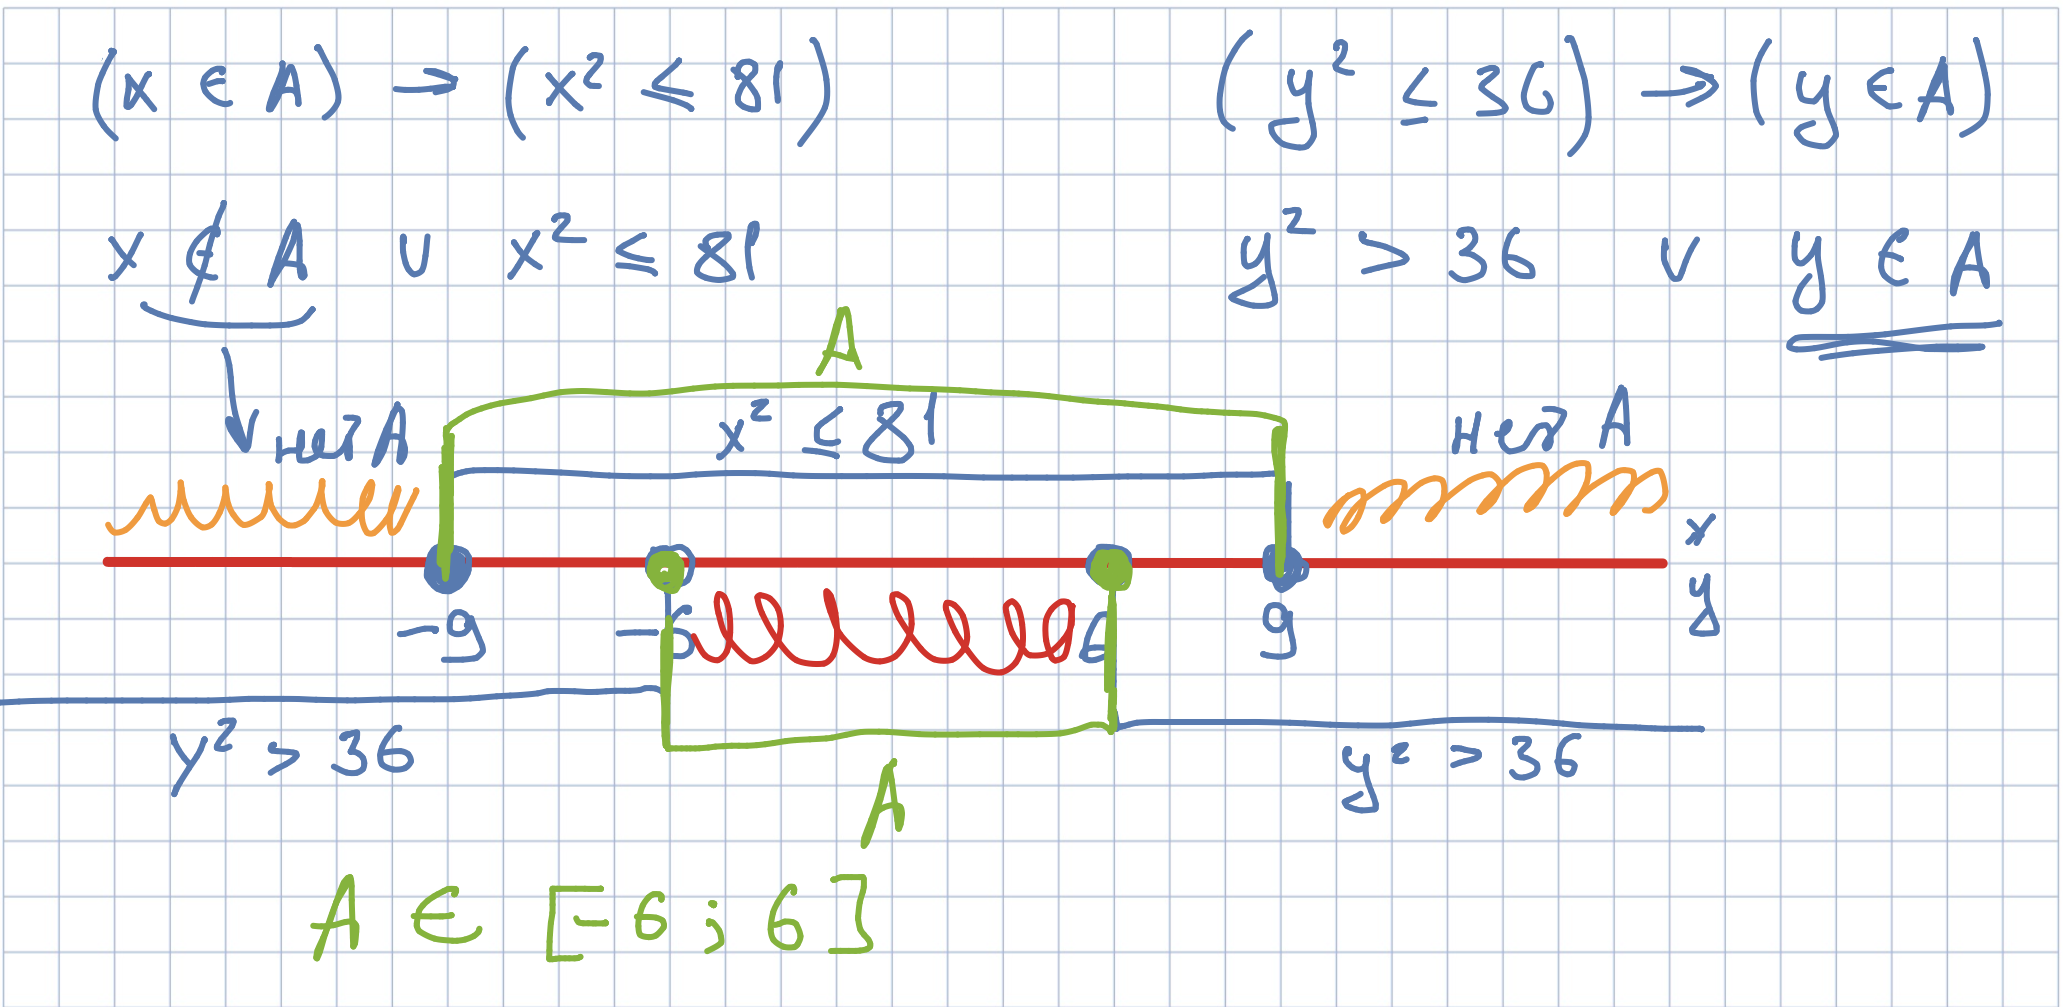 (x ∈ A) → (x² ≤ 81) (y² ≤ 36) → (y ∈ A)
x ∉ A ∨ x² ≤ 81 y² > 36 ∨ y ∈ A
A
нет A x² ≤ 81 нет A
x
-9 -6 6 9 y
y² > 36 y² > 36
A
A ∈ [-6 ; 6]